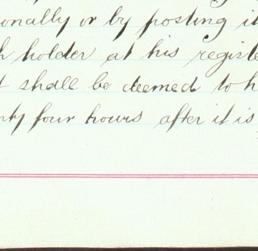 onally or by posting it
h holder at his registe
t shall be deemed to h
nty four hours after it is